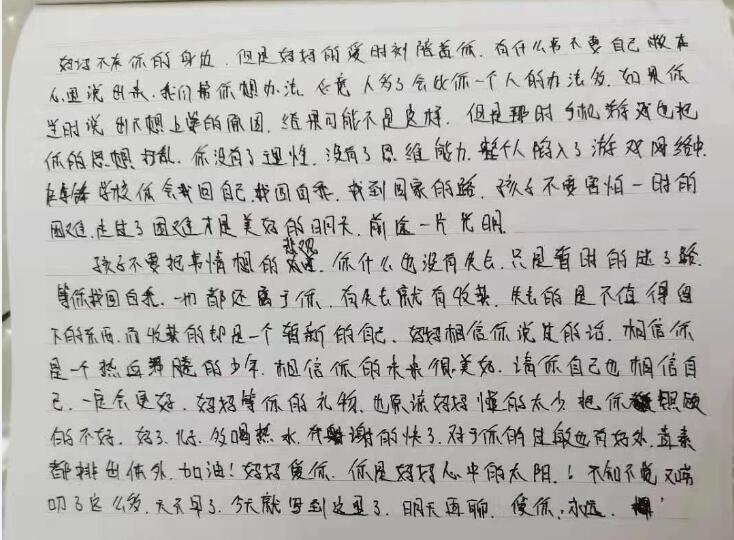 好好不在你的身边，但是好好的爱时刻陪着你，有什么事不要自己做在
心里说出来，我们帮你想办法，人多了会比你一个人的办法多，如果你
当时说出不想上学的原因，结果可能不是这样，但是那时手机游戏也把
你的思想打乱，你没有了理性，没有了思维能力，整个人陷入了游戏网络中
学校你会找回自己，找回自我，找到回家的路，孩子不要害怕一时的
困难，走过了困难才是美好的明天，前途一片光明。
孩子不要把事情想的悲观，你什么也没有失去，只是暂时的迷了路，
等你找回自我，一切都还属于你，有失去就有收获，失去的是不值得留
下的东西，而收获的却是一个暂新的自己，好好相信你说过的话，相信你
是一个热血沸腾的少年，相信你的未来很美好，请你自己也相信自
己，一定会更好，好好等你的礼物，也原谅好好懂的太少，把你照顾
的不好，好了，多喝热水，代谢的快了，对于你的过敏也有好处，毒素
都排出体外，加油！好好爱你，你是好好心中的太阳！不知不觉又唠
叨了这么多，天不早了，今天就写到这里了，明天再聊，爱你，永远，